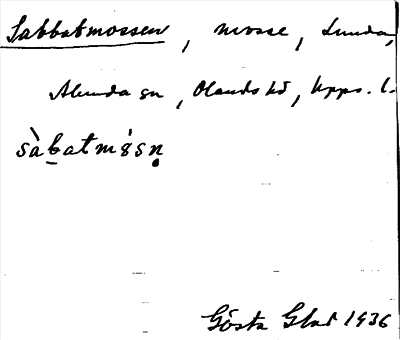 Sabbatmossen, mosse, Lunda,
Alunda sn, Olands hd, Upps. l.
sàbatmósn̥
Gösta Glad 1936